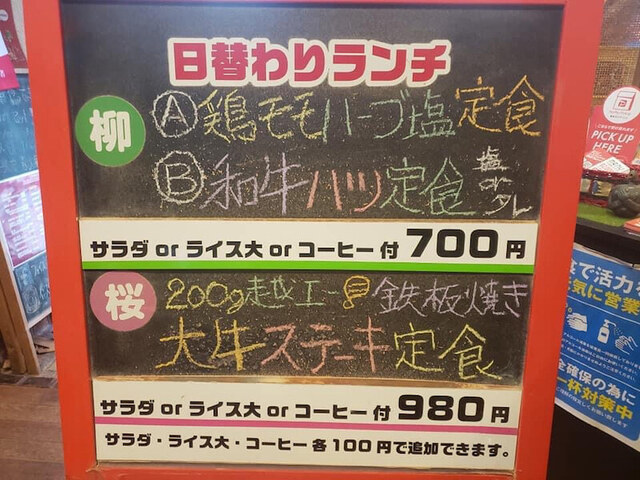 日替わりランチ
柳
Ⓐ鶏モモハーブ塩定食
Ⓑ和牛ハツ定食 塩orタレ
サラダ or ライス大 or コーヒー付 700円
桜
200g
鉄板焼き
大牛ステーキ定食
サラダ or ライス大 or コーヒー付 980円
サラダ・ライス大・コーヒー各100円で追加できます。
PICK UP
HERE
で活力を
気に営業
全確保の為に
一杯対策中